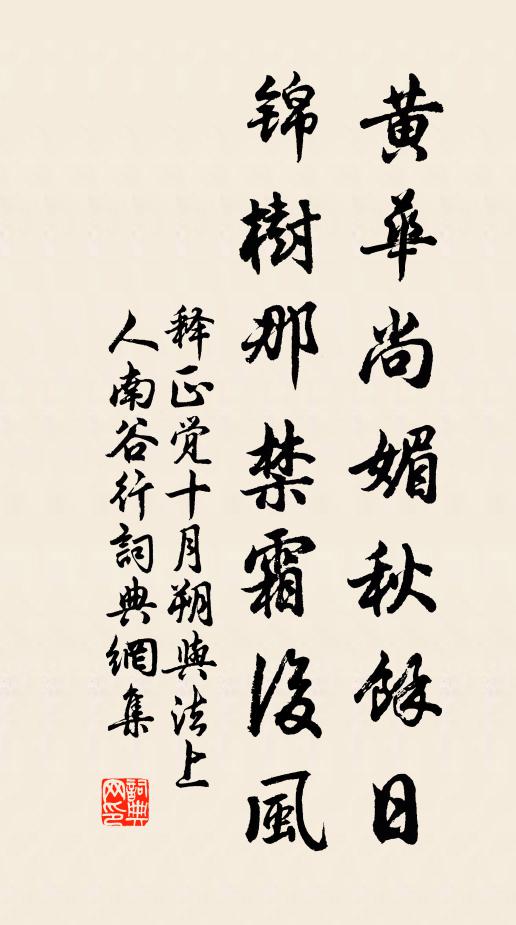 黄華尚媚秋餘日
錦樹那禁霜後風
释正觉十月朔與法上
人南谷行詞典網集
詞典
网印